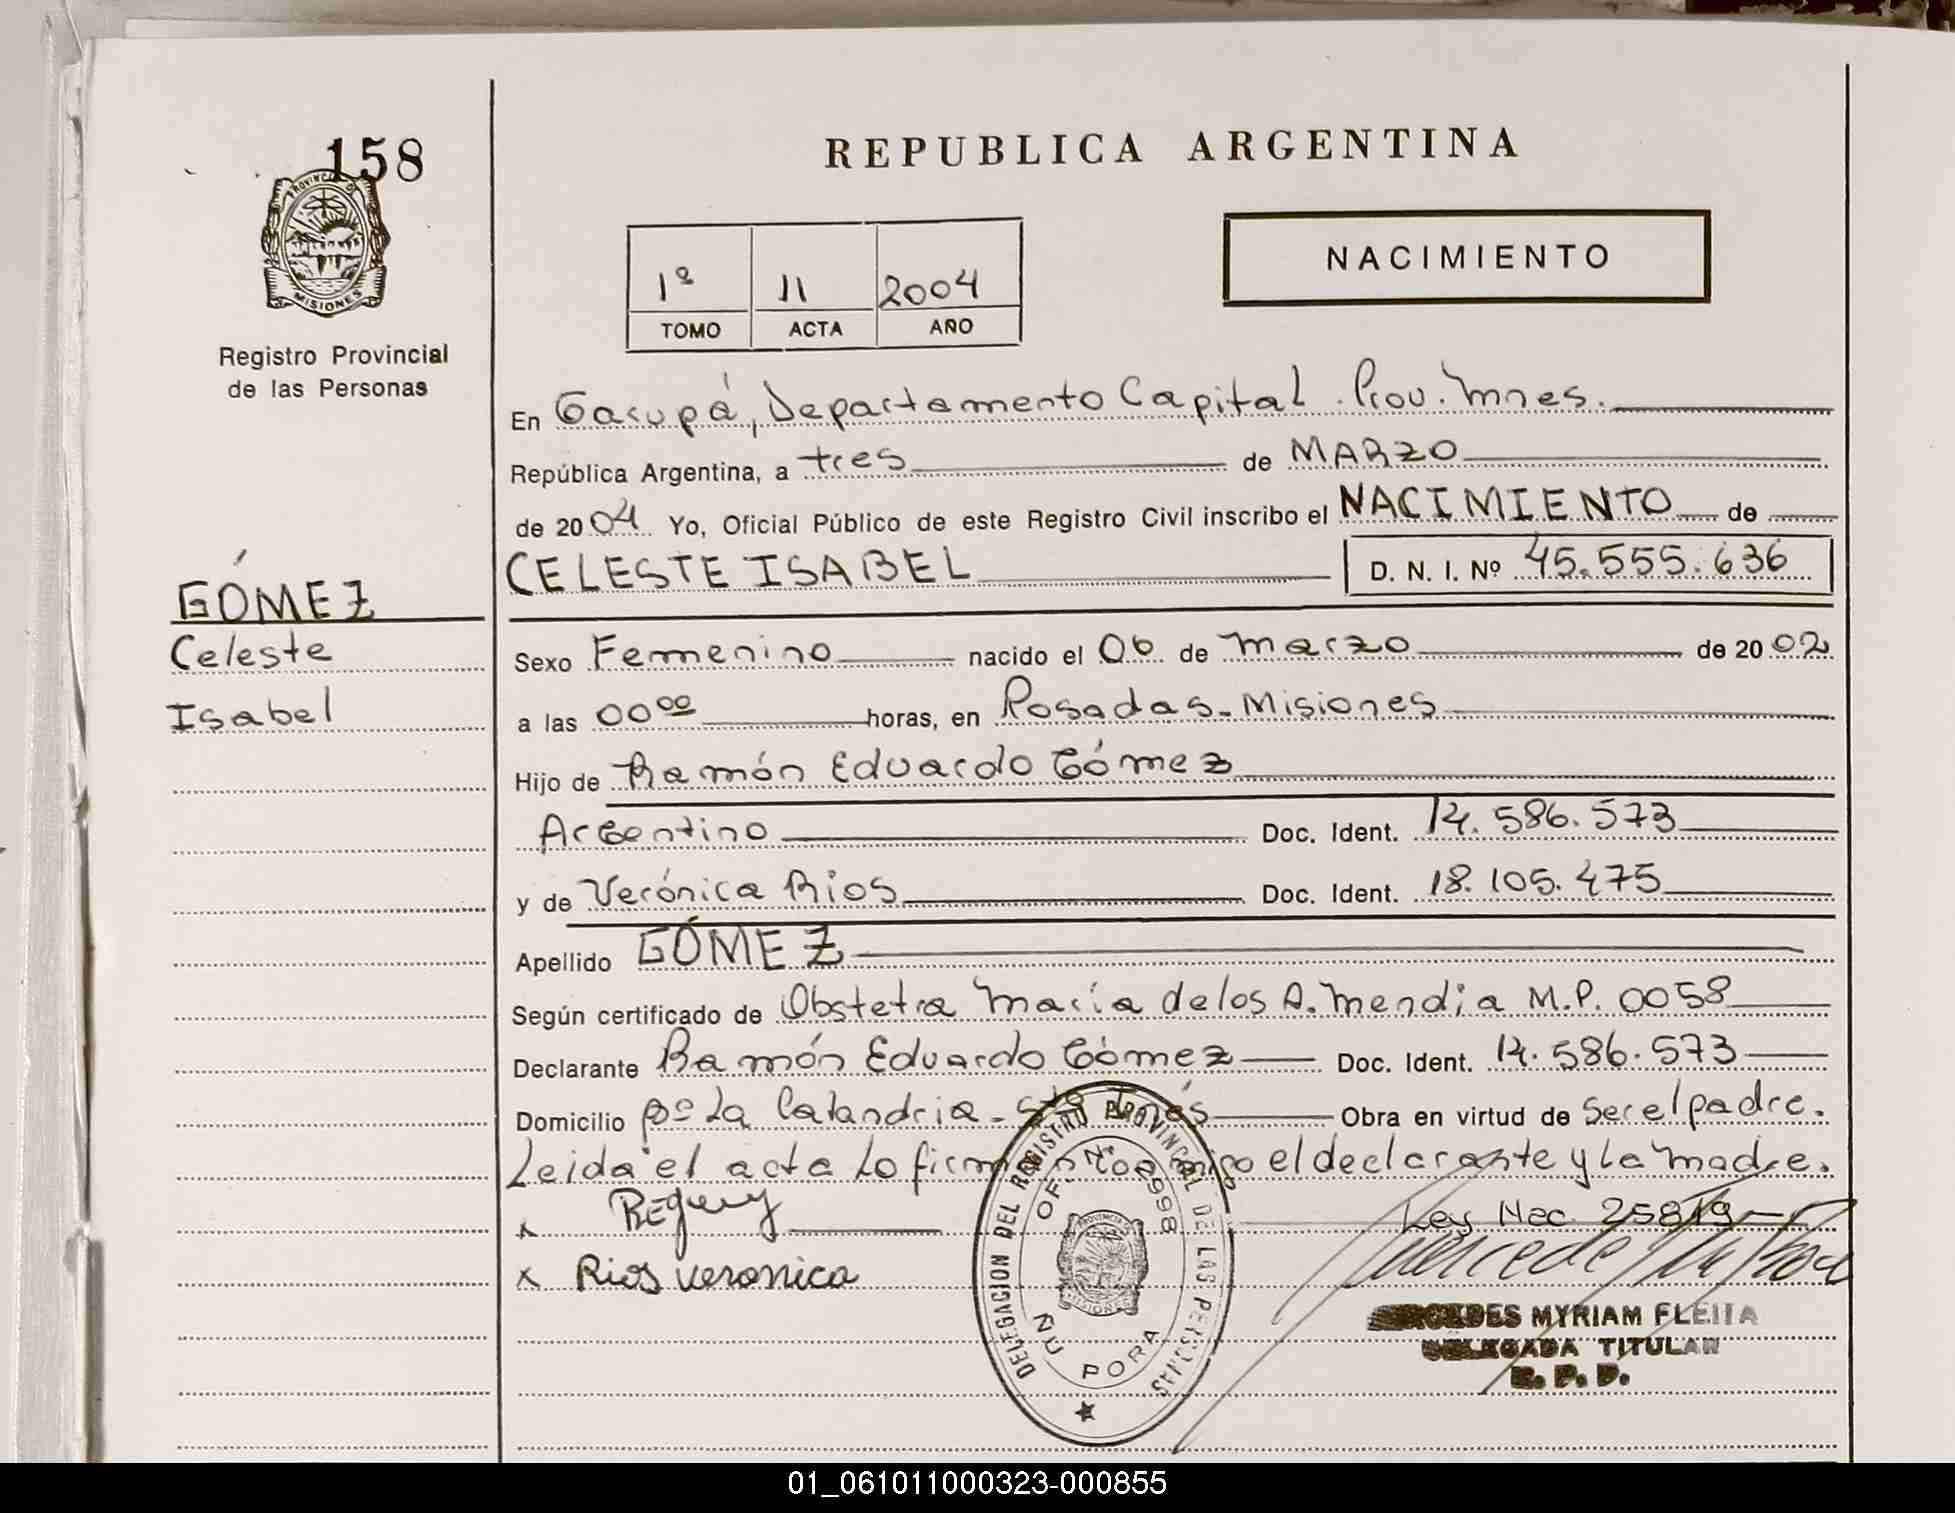 158
PROVINCIA DE
MISIONES
Registro Provincial
de las Personas
REPUBLICA ARGENTINA
NACIMIENTO
1º 11 2004
TOMO ACTA AÑO
En Garupá, Departamento Capital. Prov. Mnes.
República Argentina, a tres de MARZO
de 2004 Yo, Oficial Público de este Registro Civil inscribo el NACIMIENTO de
CELESTE ISABEL D. N. I. Nº 45.555.636
GÓMEZ
Celeste
Isabel
Sexo Femenino nacido el 06 de Marzo de 2002
a las 00ºº horas, en Posadas-Misiones
Hijo de Ramón Eduardo Gómez
Argentino Doc. Ident. 14.586.573
y de Verónica Rios Doc. Ident. 18.105.475
Apellido GÓMEZ
Según certificado de Obstetra María de los A. Mendia M.P. 0058
Declarante Ramón Eduardo Gómez Doc. Ident. 14.586.573
Domicilio Bº La Calandria - Sta Inés Obra en virtud de Ser el padre.
Leida el acta lo firman conmigo el declarante y la Madre.
x Ley Nac. 25819
x Rios veronica
DELEGACION DEL REGISTRO PROVINCIAL DE LAS PERSONAS
OF. 2998
ÑU PORA
MISIONES
MYRIAM FLEITA
DELEGADA TITULAR
R. P. P.
01_061011000323-000855